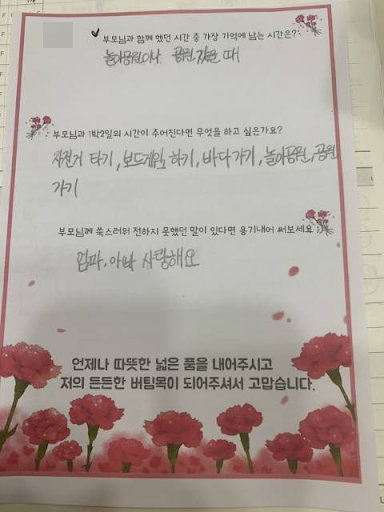 부모님과 함께 했던 시간 중 가장 기억에 남는 시간은?
놀이공원이나 공원 갔을 때
부모님과 1박2일의 시간이 주어진다면 무엇을 하고 싶은가요?
자전거 타기, 보드게임 하기, 바다 가기, 놀이공원, 공원
가기
부모님께 쑥스러워 전하지 못했던 말이 있다면 용기내어 써보세요
엄마, 아빠 사랑해요
언제나 따뜻한 넓은 품을 내어주시고
저의 든든한 버팀목이 되어주셔서 고맙습니다.